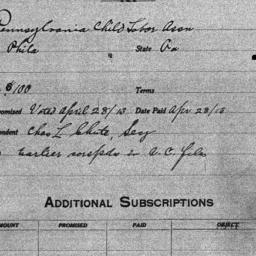 Pennsylvania Child Labor Assn
Phila State Pa
$100 Terms
omised Voted April 28/13 Date Paid Apr 28/13
ondent Chas L Chute, Secy
Earlier corresp'd in A.C. File
ADDITIONAL SUBSCRIPTIONS
MOUNT PROMISED PAID OBJECT